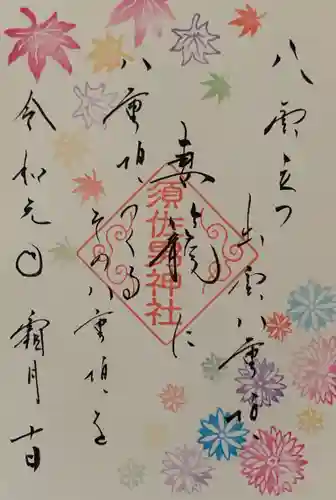 八雲立つ
出雲八重垣
妻籠に
八重垣つくる
その八重垣を
須佐神社
令和元年 霜月 十日